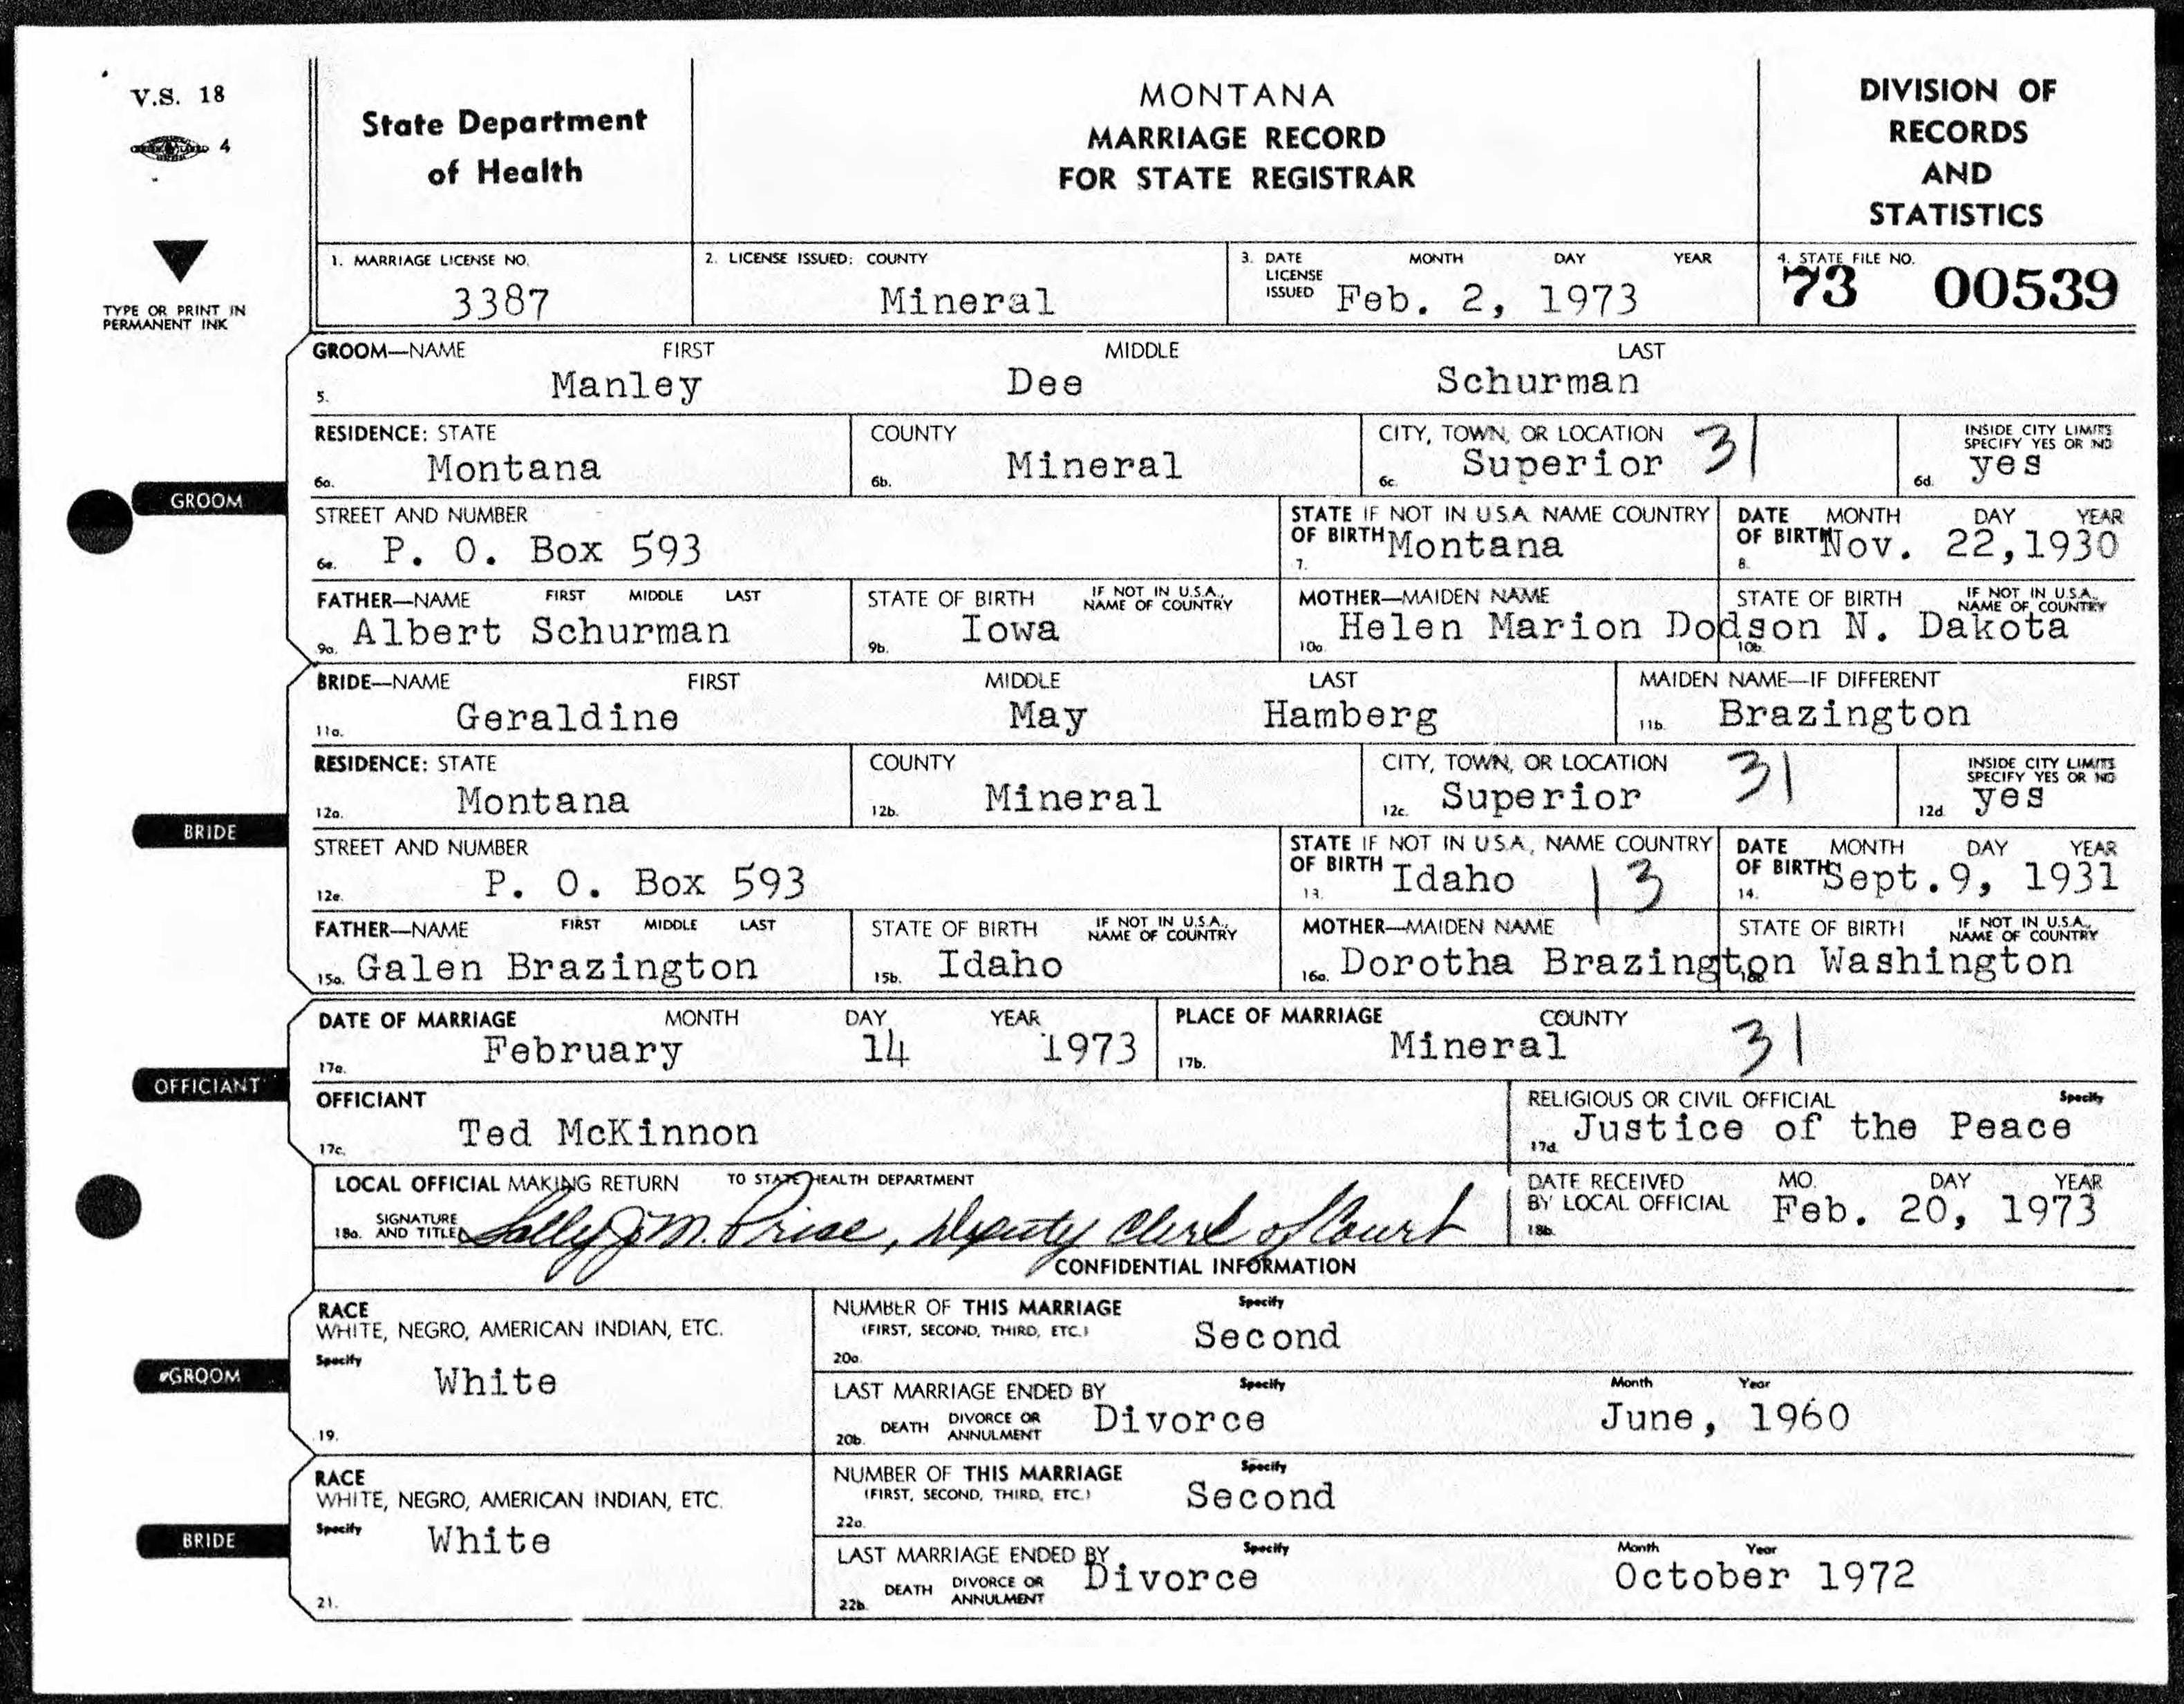 V.S. 18
4
TYPE OR PRINT IN
PERMANENT INK
State Department
of Health
MONTANA
MARRIAGE RECORD
FOR STATE REGISTRAR
DIVISION OF
RECORDS
AND
STATISTICS
1. MARRIAGE LICENSE NO.
3387
2. LICENSE ISSUED: COUNTY
Mineral
3. DATE LICENSE ISSUED MONTH DAY YEAR
Feb. 2, 1973
4. STATE FILE NO.
73 00539
GROOM
GROOM—NAME FIRST MIDDLE LAST
5. Manley Dee Schurman
RESIDENCE: STATE
6a. Montana
COUNTY
6b. Mineral
CITY, TOWN, OR LOCATION
6c. Superior 31
INSIDE CITY LIMITS
SPECIFY YES OR NO
6d. yes
STREET AND NUMBER
6e. P. O. Box 593
STATE IF NOT IN U.S.A. NAME COUNTRY
OF BIRTH Montana
7.
DATE MONTH DAY YEAR
OF BIRTH Nov. 22,1930
8.
FATHER—NAME FIRST MIDDLE LAST
9a. Albert Schurman
STATE OF BIRTH IF NOT IN U.S.A., NAME OF COUNTRY
9b. Iowa
MOTHER—MAIDEN NAME
10a. Helen Marion Dodson
STATE OF BIRTH IF NOT IN U.S.A., NAME OF COUNTRY
10b. N. Dakota
BRIDE
BRIDE—NAME FIRST MIDDLE LAST
11a. Geraldine May Hamberg
MAIDEN NAME—IF DIFFERENT
11b. Brazington
RESIDENCE: STATE
12a. Montana
COUNTY
12b. Mineral
CITY, TOWN, OR LOCATION
12c. Superior 31
INSIDE CITY LIMITS
SPECIFY YES OR NO
12d. yes
STREET AND NUMBER
12e. P. O. Box 593
STATE IF NOT IN U.S.A., NAME COUNTRY
OF BIRTH Idaho 13
13.
DATE MONTH DAY YEAR
OF BIRTH Sept.9, 1931
14.
FATHER—NAME FIRST MIDDLE LAST
15a. Galen Brazington
STATE OF BIRTH IF NOT IN U.S.A., NAME OF COUNTRY
15b. Idaho
MOTHER—MAIDEN NAME
16a. Dorotha Brazington
STATE OF BIRTH IF NOT IN U.S.A., NAME OF COUNTRY
16b. Washington
OFFICIANT
DATE OF MARRIAGE MONTH DAY YEAR
17a. February 14 1973
PLACE OF MARRIAGE COUNTY
17b. Mineral 31
OFFICIANT
17c. Ted McKinnon
RELIGIOUS OR CIVIL OFFICIAL Specify
17d. Justice of the Peace
LOCAL OFFICIAL MAKING RETURN TO STATE HEALTH DEPARTMENT
18a. SIGNATURE AND TITLE Sally M. Price, Deputy Clerk of Court
DATE RECEIVED MO. DAY YEAR
BY LOCAL OFFICIAL Feb. 20, 1973
18b.
CONFIDENTIAL INFORMATION
GROOM
RACE
WHITE, NEGRO, AMERICAN INDIAN, ETC.
Specify White
19.
NUMBER OF THIS MARRIAGE Specify
(FIRST, SECOND, THIRD, ETC.) Second
20a.
LAST MARRIAGE ENDED BY Specify Month Year
20b. DEATH DIVORCE OR ANNULMENT Divorce June, 1960
BRIDE
RACE
WHITE, NEGRO, AMERICAN INDIAN, ETC.
Specify White
21.
NUMBER OF THIS MARRIAGE Specify
(FIRST, SECOND, THIRD, ETC.) Second
22a.
LAST MARRIAGE ENDED BY Specify Month Year
22b. DEATH DIVORCE OR ANNULMENT Divorce October 1972